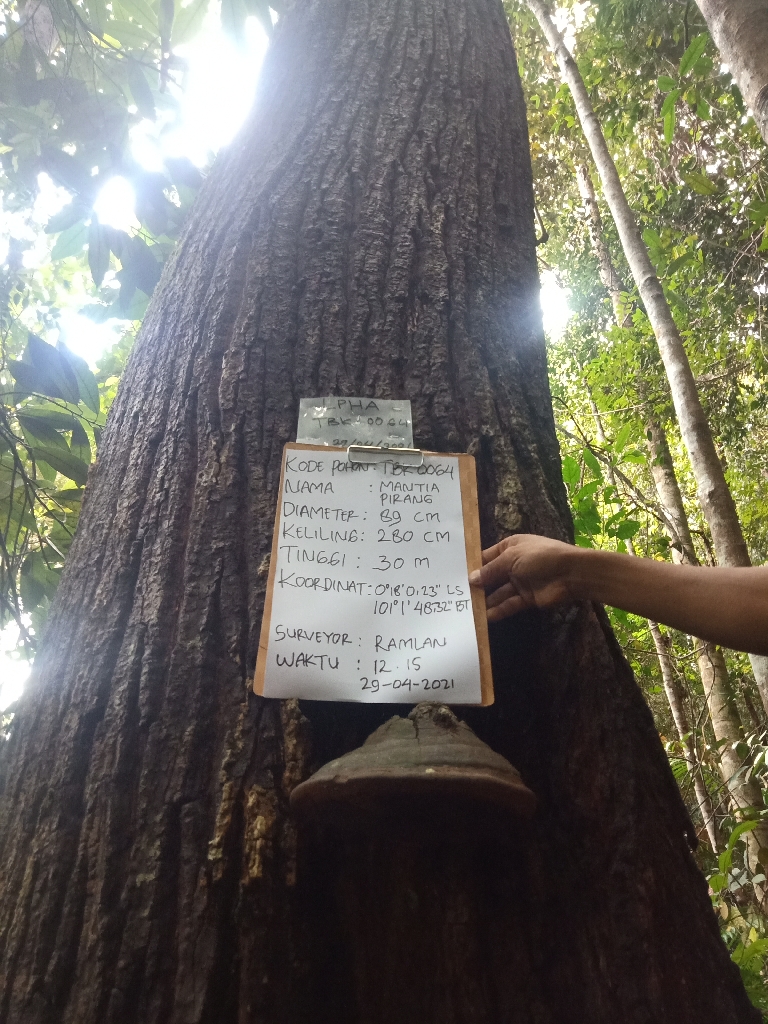 LPHA
TBK-0064
29/04/2021
KODE POHON: TBK0064
NAMA : MANTIA
PIRANG
DIAMETER: 89 CM
KELILING: 280 CM
TINGGI : 30 M
KOORDINAT: 0°18'0,23" LS
101°1'48.32" BT
SURVEYOR: RAMLAN
WAKTU : 12.15
29-04-2021